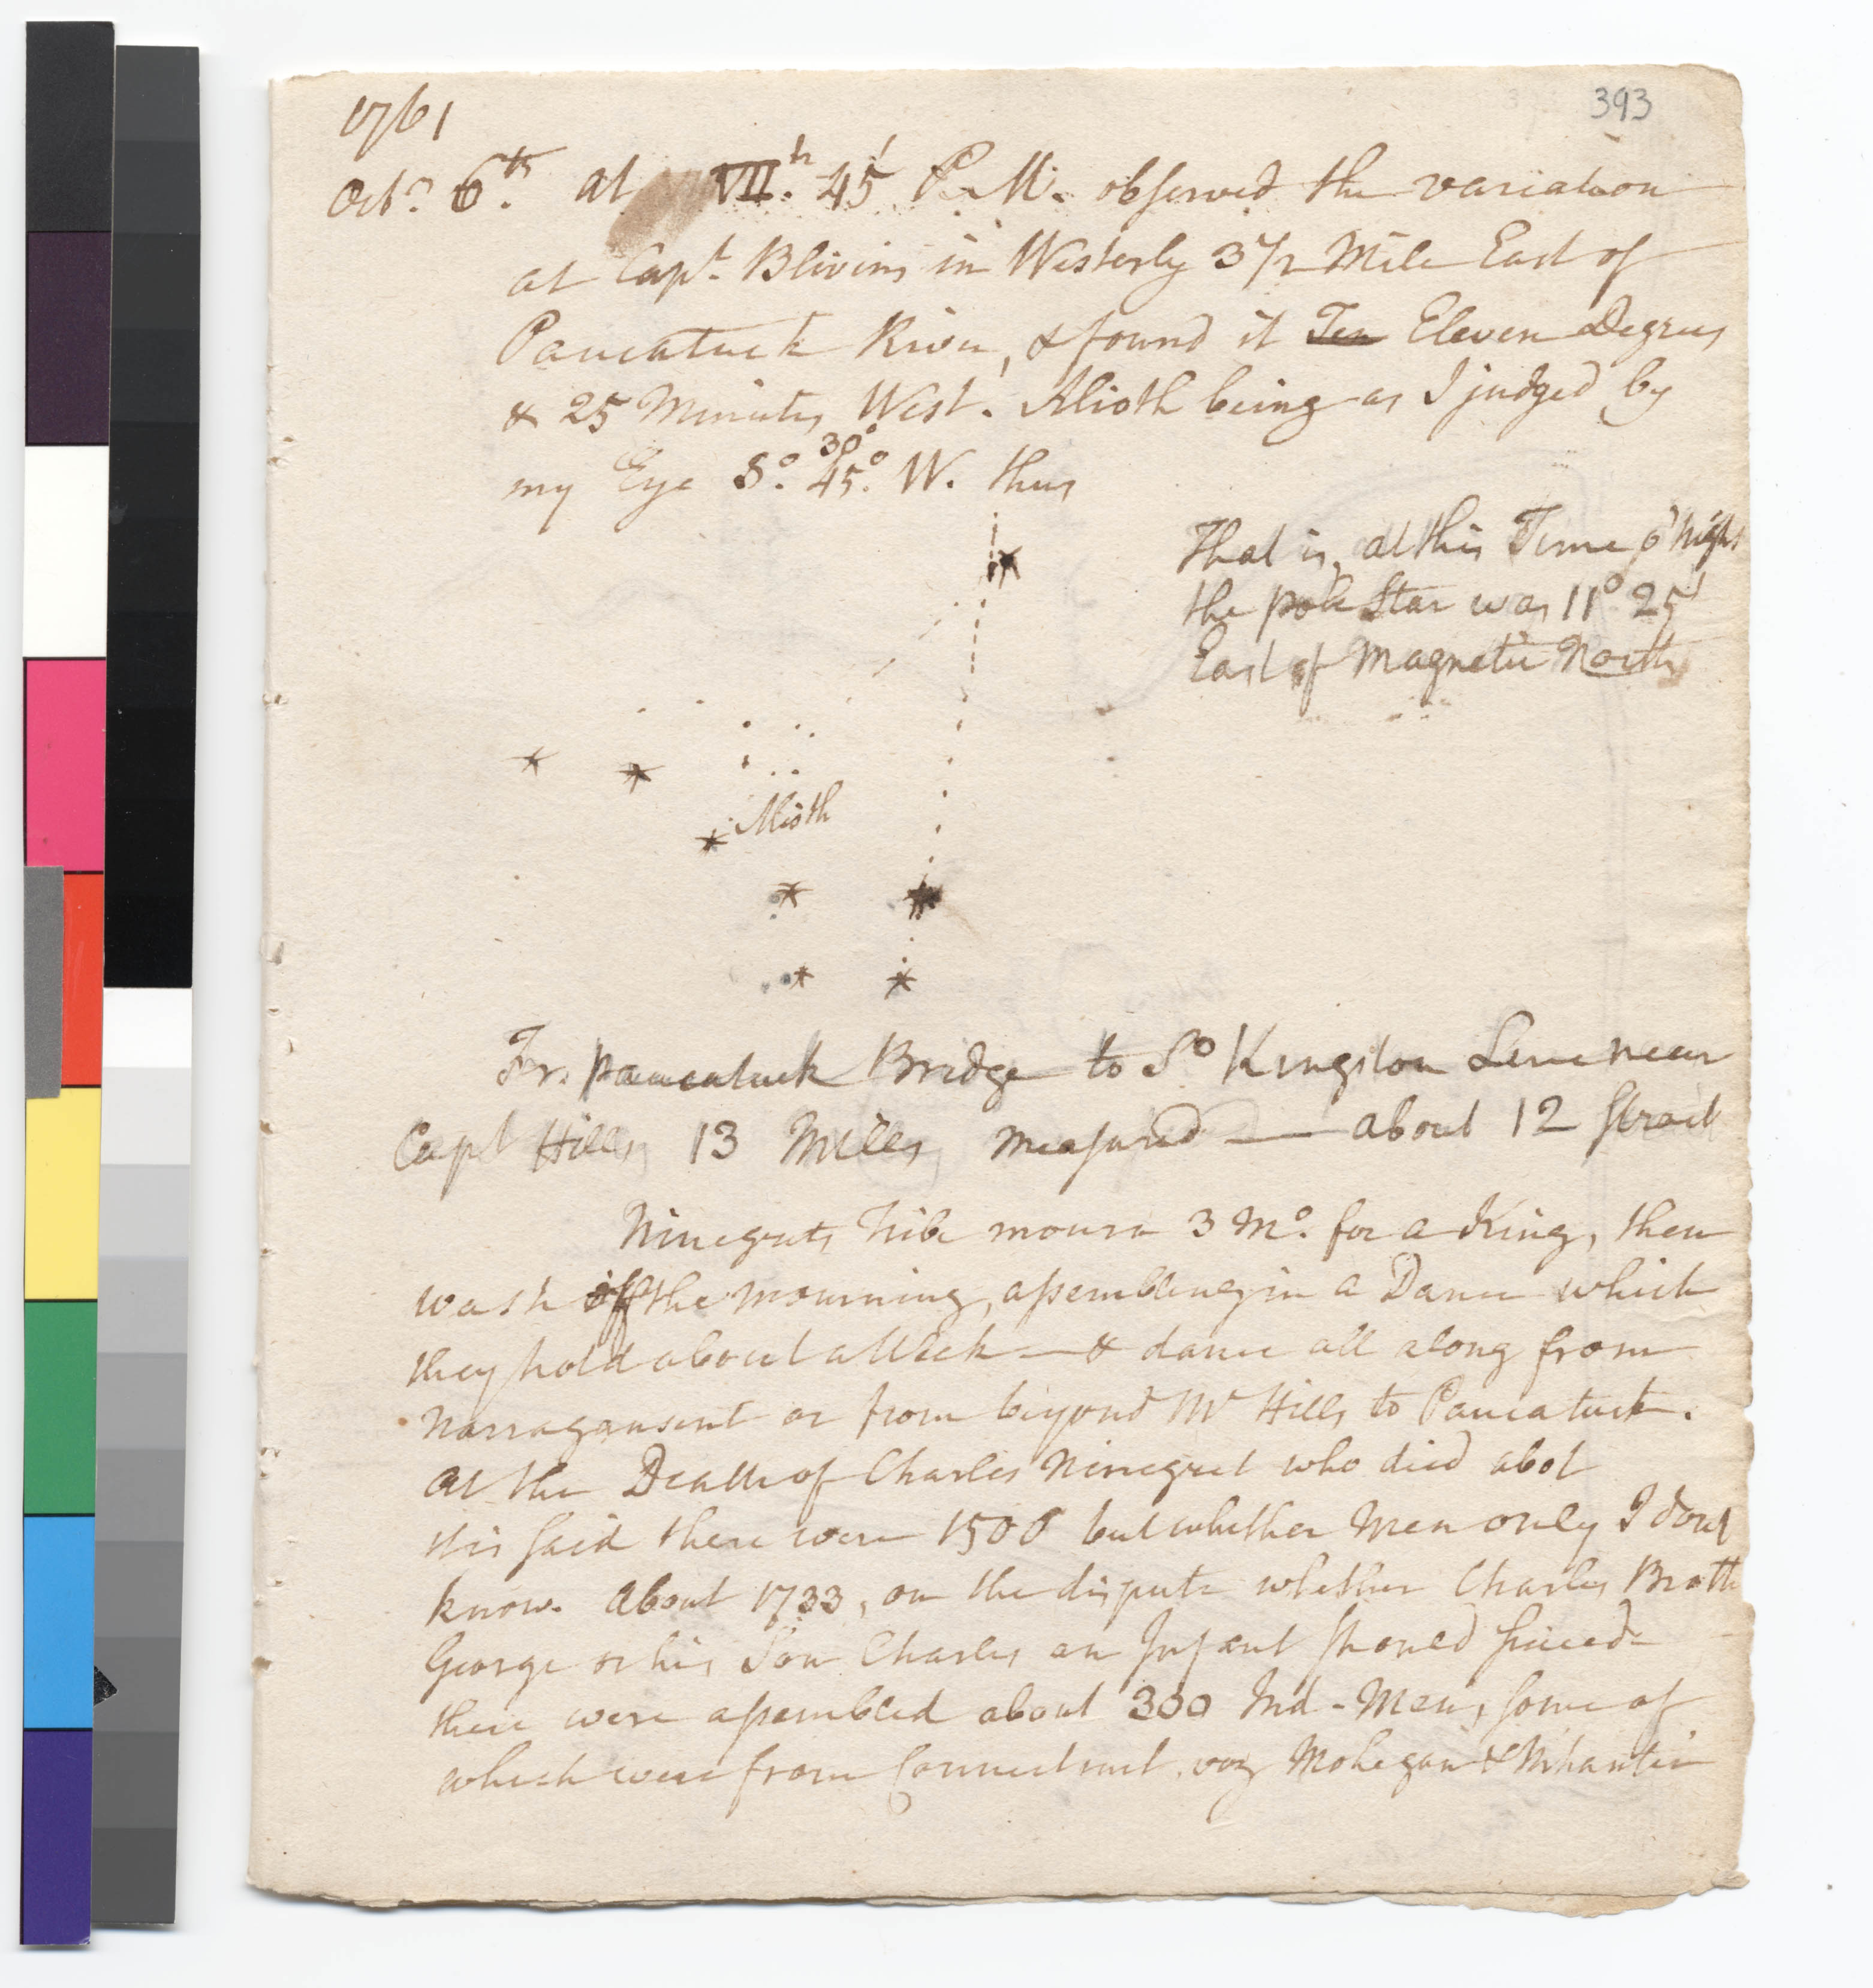 393
1761
Octo. 6th. at VII.h 45' P.M. observed the variation
at Capt. Blivins in Westerly 3 1/2 Mile East of
Paucatuck River, & found it Ten Eleven Degrees
& 25 Minutes West. Alioth being as I judged by
my Eye So. 45°. 30° W. thus
That is, at this Time o' night
the pole Star was 11° 25'
East of Magnetic North
Alioth
Fr. paucatuck Bridge to So Kingston Line near
Capt Hills 13 Miles measured — about 12 strait
Ninegrets Tribe mourn 3 Mo. for a King, then
wash off the mourning, assembling in a Dance which
they hold about a Week — & dance all along from
Narraganset or from beyond Mr Hills to Paucatuck.
At the Death of Charles Ninegret who died abot
tis said there were 1500 but whether Men only I dont
know. About 1733, on the dispute whether Charles Broth
George or his Son Charles an Infant should succeed
there were assembled about 300 Ind-Men, some of
which were from Connecticut. viz Mohegan &